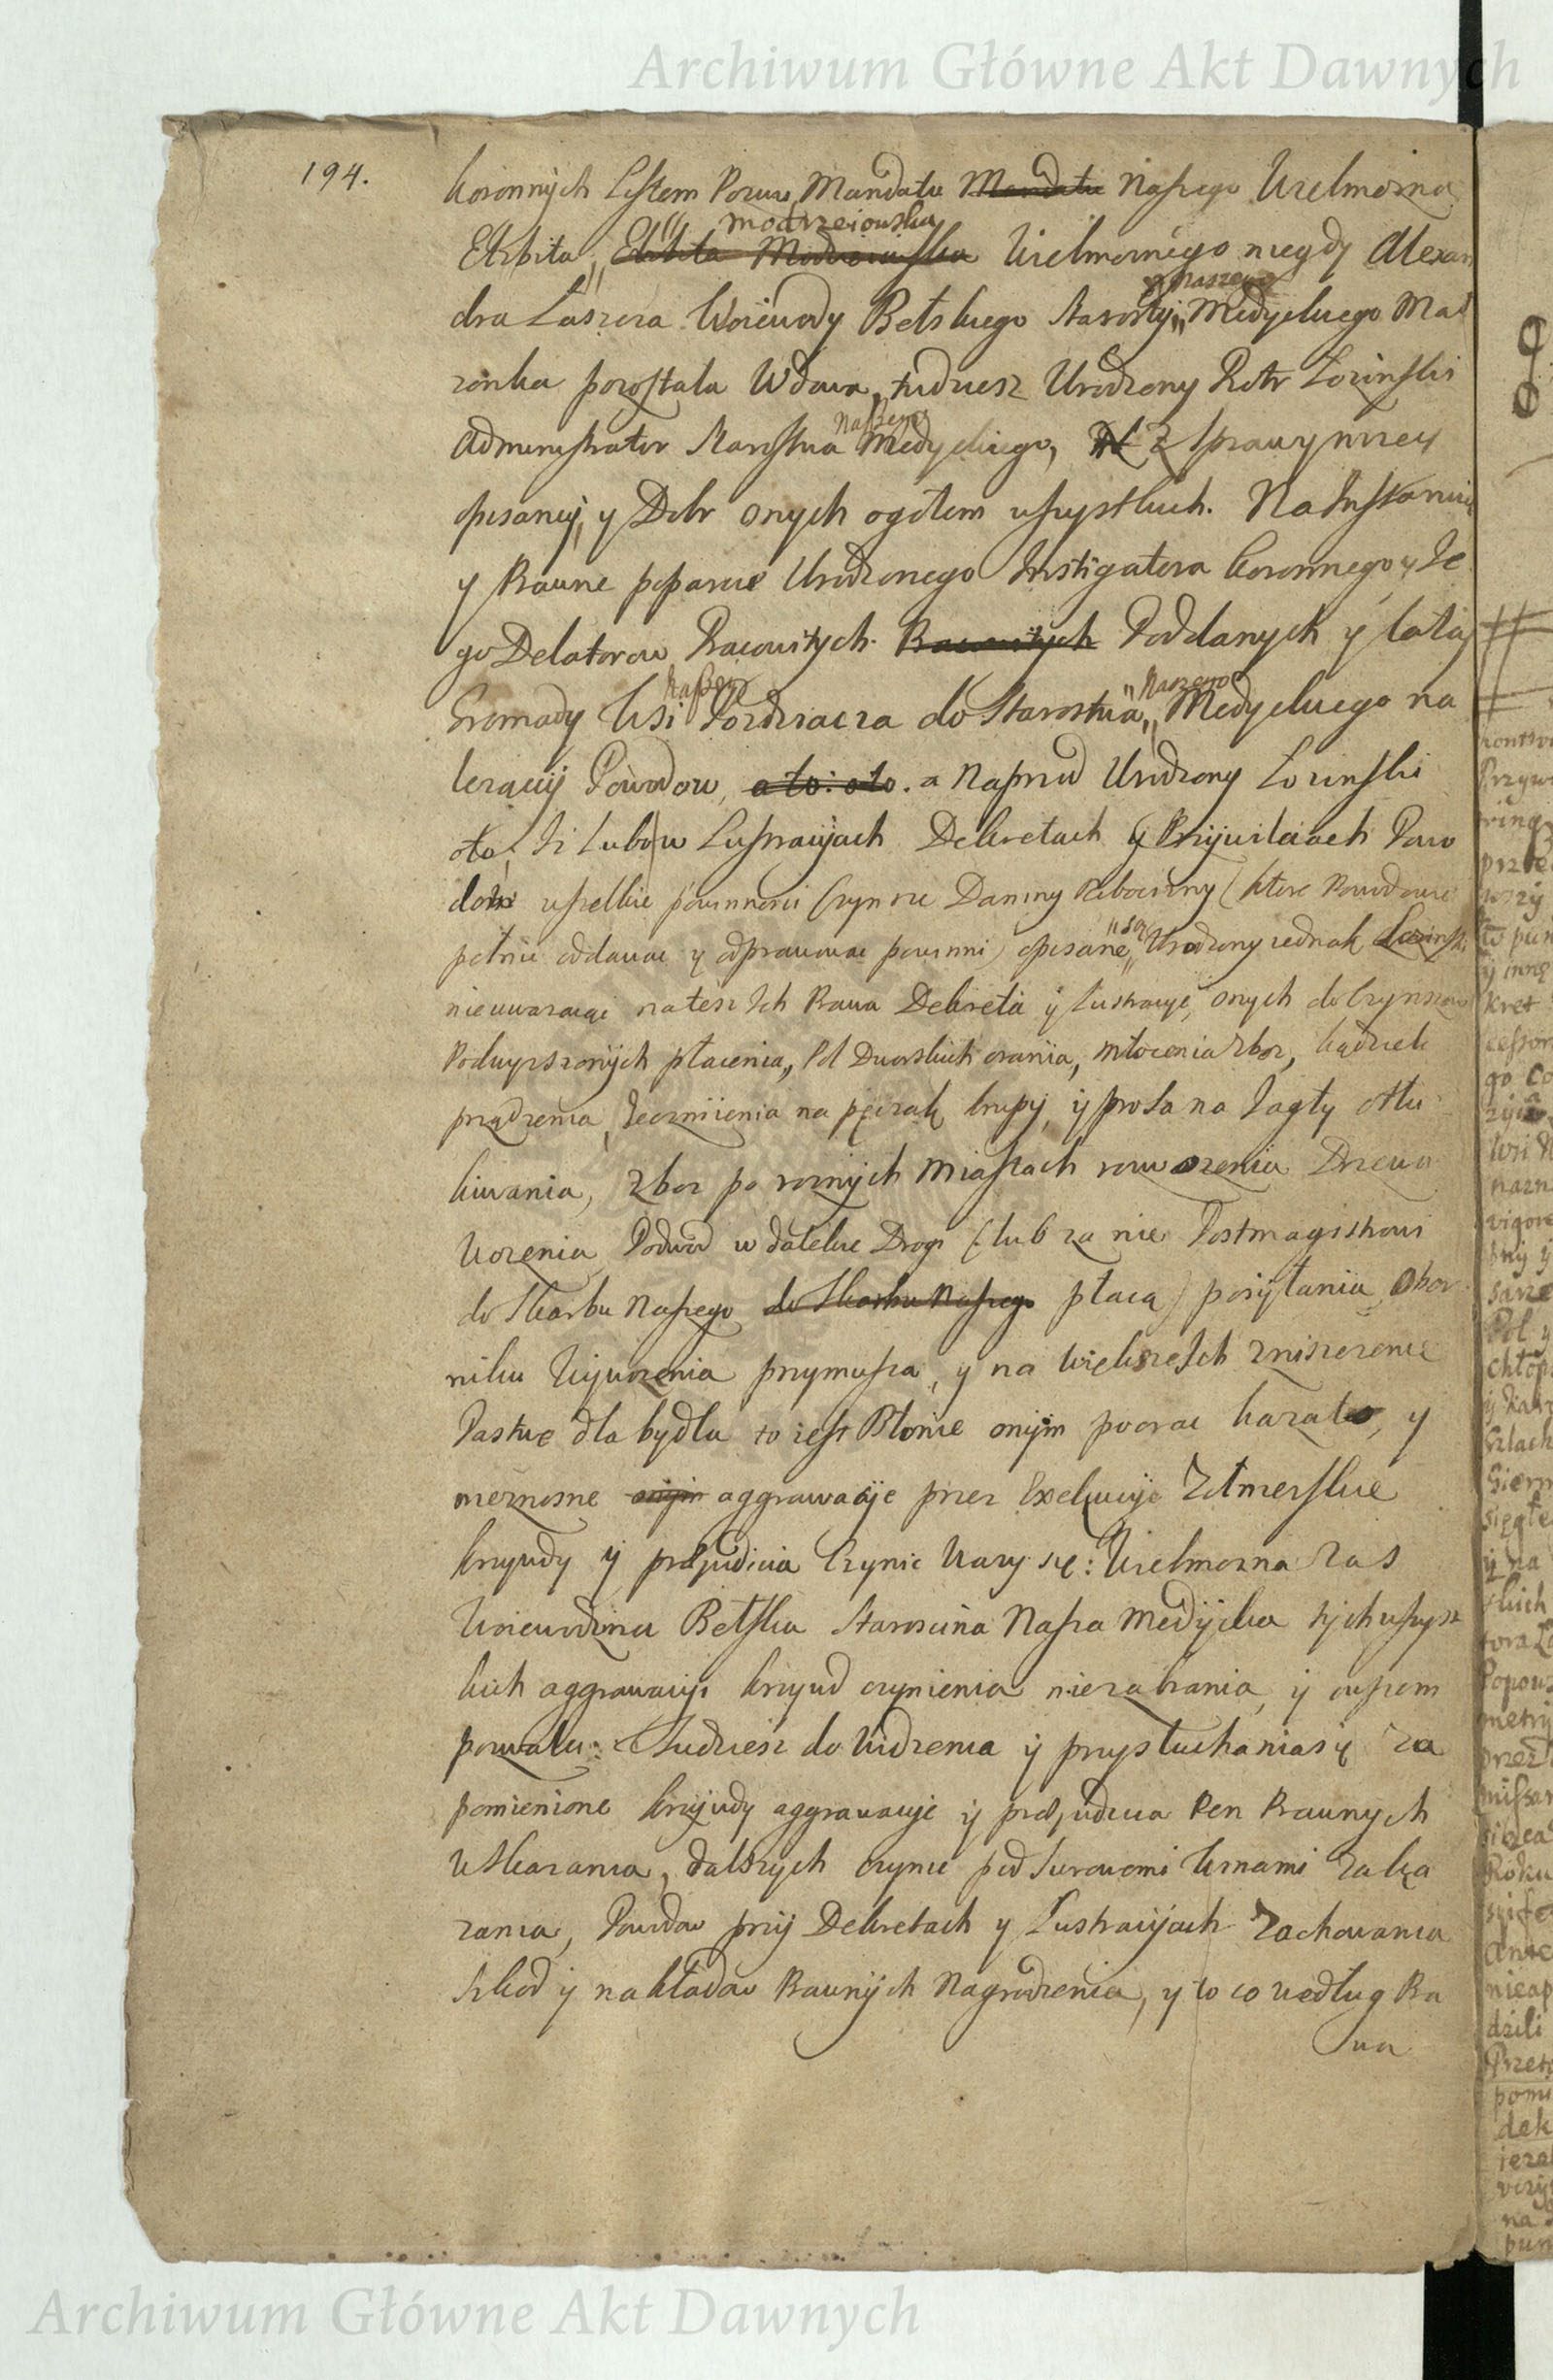 Archiwum Główne Akt Dawnych
194.
koronnych Listem Pozwu, Mandatu Mandatu Naszego Wielmożna
Elzbita, Elzbita Modrzeiowska Modrzeiowska Wielmożnego niegdy Alexan
dra Laszcza Woiewody Bełskiego Starosty naszego Medyckiego Mał
zonka pozostala Wdowa, tudziesz Urodzony Piotr Łozinski
Administrator Starostwa Naszego Medyckiego, Z sprawy nizey
opisaney, y Dobr onych ogółem wszystkich. Na Instancią
y Prawne poparcie Urodzonego Instigatora koronnego y Ie
go Delatorow Pracowitych Pracowitych Poddanych y całay
Gromady Wsi Naszey Pozdziacza do Starostwa Naszego Medyckiego na
lezącÿ Powodow, a to: oto. a naprzod Urodzony Łozinski
oto, Iż Lubo w Lustracÿach Dekretach y Przÿwileiach Powo
dow wszelkie powinnosci Czynsze Daniny Robocizny (ktore Powodowie
pełnic oddawac y odprawowac powinni) opisane są, Urodzony iednak Łozinski
nieuwazaiąc na tesz Ich Prawa Dekreta ÿ Lustracye, onych do Czynszow
Podwyzszonÿch płacenia, Pol Dworskich orania, młocenia zboz, kądzieli
prządzenia, Ieczmiienia na pęczak krupÿ, ÿ prosa na Iagły otłu
kiwania, zboz po roznÿch Miastach rozwozenia Drzewa
Wozenia, Podwod w dalekie Drogi (lub za nie Postmagistrowi
do Skarbu Naszego do Skarbu Naszego płacą) posÿłania, Obor
niku Wÿwozenia przymusza, y na większe Ich zniszczenie
Pastwę dla bydła to iest Błonie onÿm poorac kazał, y
nieznosne onÿm aggrawacÿe przez Exekucÿe Zołnierskie
krzywdy ÿ præjudicia Czynic Wazy się: Wielmozna zas
Woiewodzina Bełska Staroscina Nasza Medÿcka tÿch wszyst
kich aggrawacyi krzywd czynienia niezabrania, ÿ owszem
pozwala: Tudziesz do Widzenia ÿ przysłuchania się za
pomienione krzÿwdy aggrawacye ÿ præjudicia Pen Prawnych
Wskazania, dalszych czynic pod surowemi Winami zaka
zania, Powodow przÿ Dekretach y Lustracÿach Zachowania
Szkod ÿ nakładow Prawnÿch Nagrodzenia, y to co według Pra
wa
Archiwum Główne Akt Dawnych